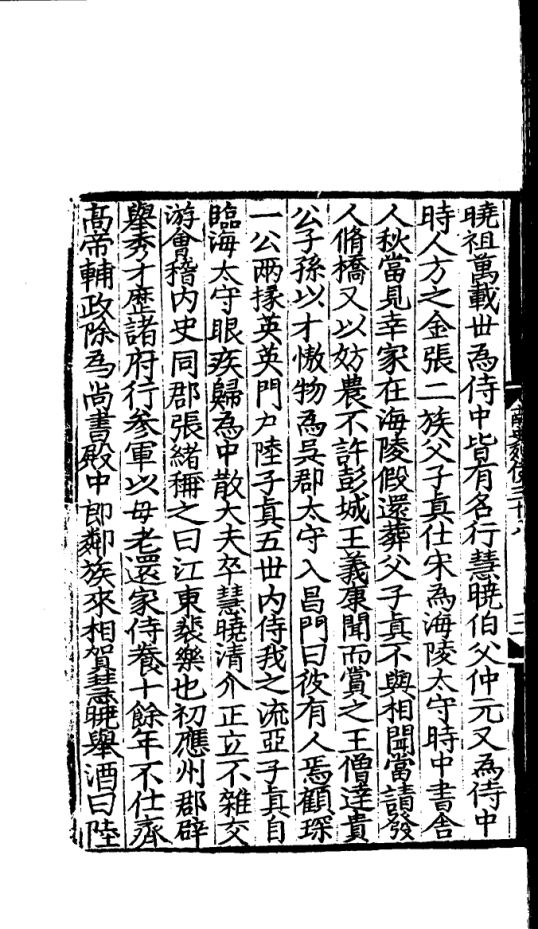 曉祖萬載世為侍中皆有名行慧曉伯父仲元又為侍中
時人方之金張二族父子真仕宋為海陵太守時中書舍
人秋當見幸家在海陵假還葬父子真不與相聞當請發
人脩橋又以妨農不許彭城王義康聞而賞之王僧達貴
公子孫以才慠物為吳郡太守入昌門曰彼有人焉顧琛
一公兩掾英英門戶陸子真五世內侍我之流亞子真自
臨海太守眼疾歸為中散大夫卒慧曉清介正立不雜交
游會稽內史同郡張緒稱之曰江東裴樂也初應州郡辟
舉秀才歷諸府行參軍以母老還家侍養十餘年不仕齊
高帝輔政除為尚書殿中郎鄰族來相賀慧曉舉酒曰陸